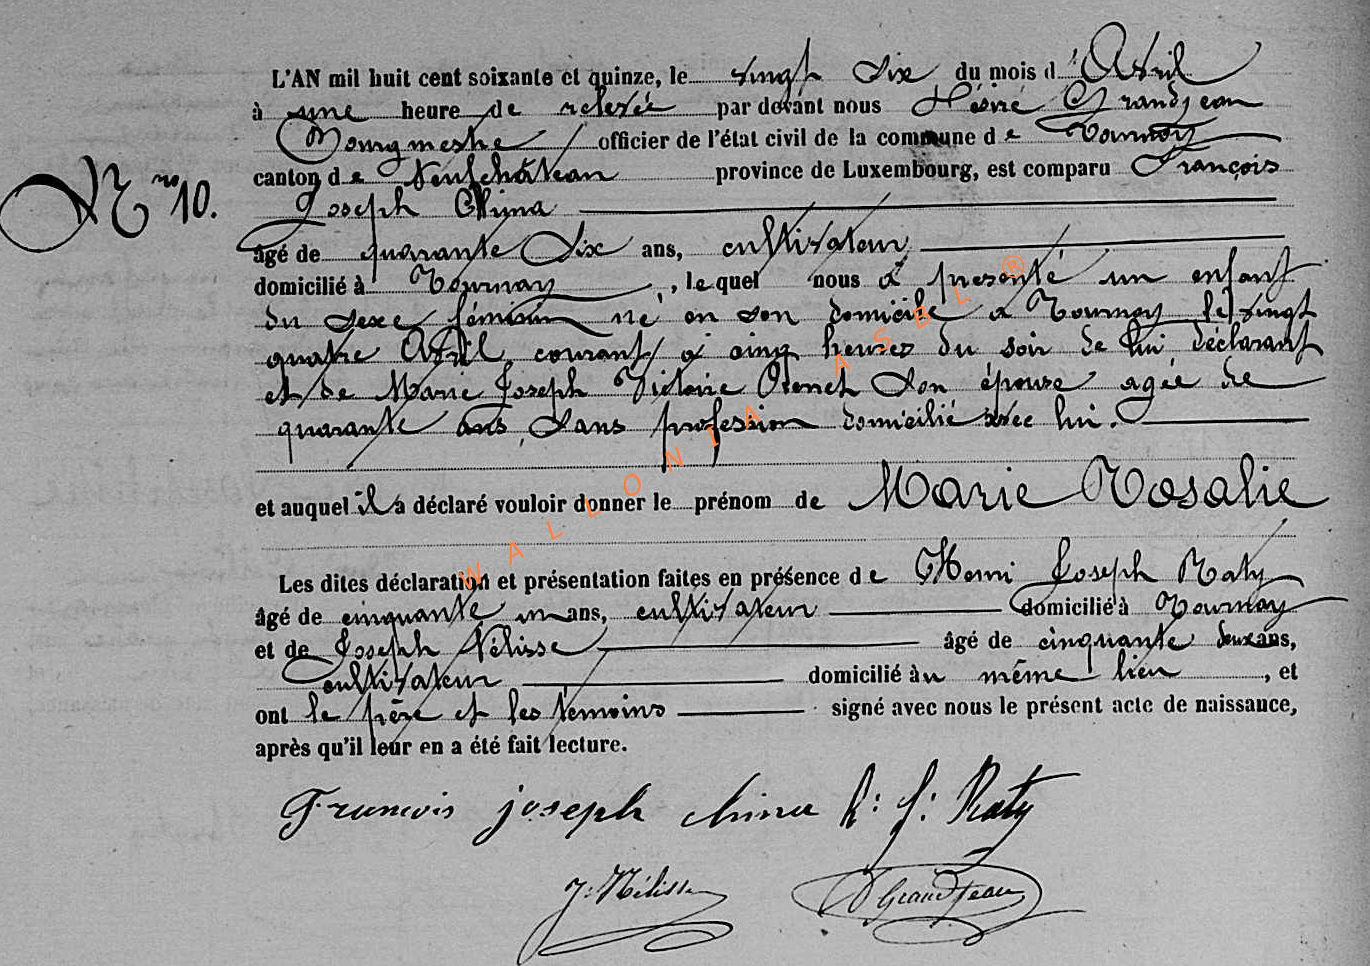 L'AN mil huit cent soixante et quinze, le vingt six du mois d'Avril
à une heure de relevée par devant nous Désiré Grandjean
Bourgmestre officier de l'état civil de la commune de Tournay
canton de Neufchâteau province de Luxembourg, est comparu François
N no 10.
Joseph China
âgé de quarante six ans, cultivateur
domicilié à Tournay, lequel nous a présenté un enfant
du sexe féminin né en son domicile à Tournay le vingt
quatre Avril courant à cinq heures du soir de lui déclarant
et de Marie Joseph Victoire son épouse agée de
quarante ans, sans profession domicilié avec lui.
et auquel il a déclaré vouloir donner le prénom de Marie Rosalie
Les dites déclaration et présentation faites en présence de Henri Joseph Raty
âgé de cinquante un ans, cultivateur domicilié à Tournay
et de Joseph Nélisse âgé de cinquante deux ans,
cultivateur domicilié au même lieu, et
ont le père et les témoins signé avec nous le présent acte de naissance,
après qu'il leur en a été fait lecture.
François joseph china h: j: Raty
J: Nélisse D Grandjean
WALLONIA ASBL ®